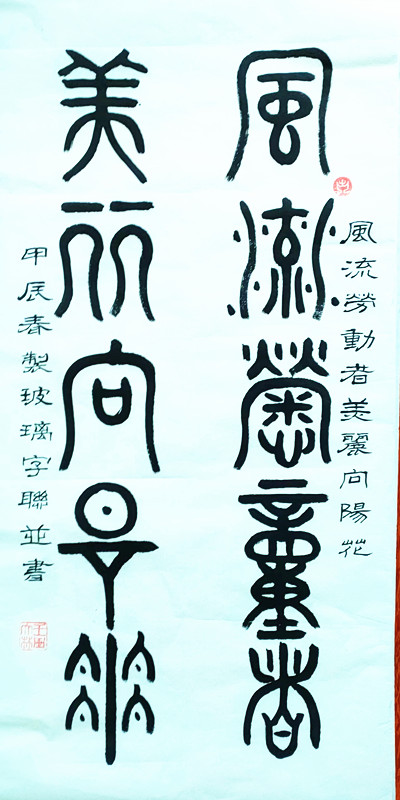 風流勞動者
風流勞動者美麗向陽花
美麗向陽花
甲辰春製玻璃字聯並書